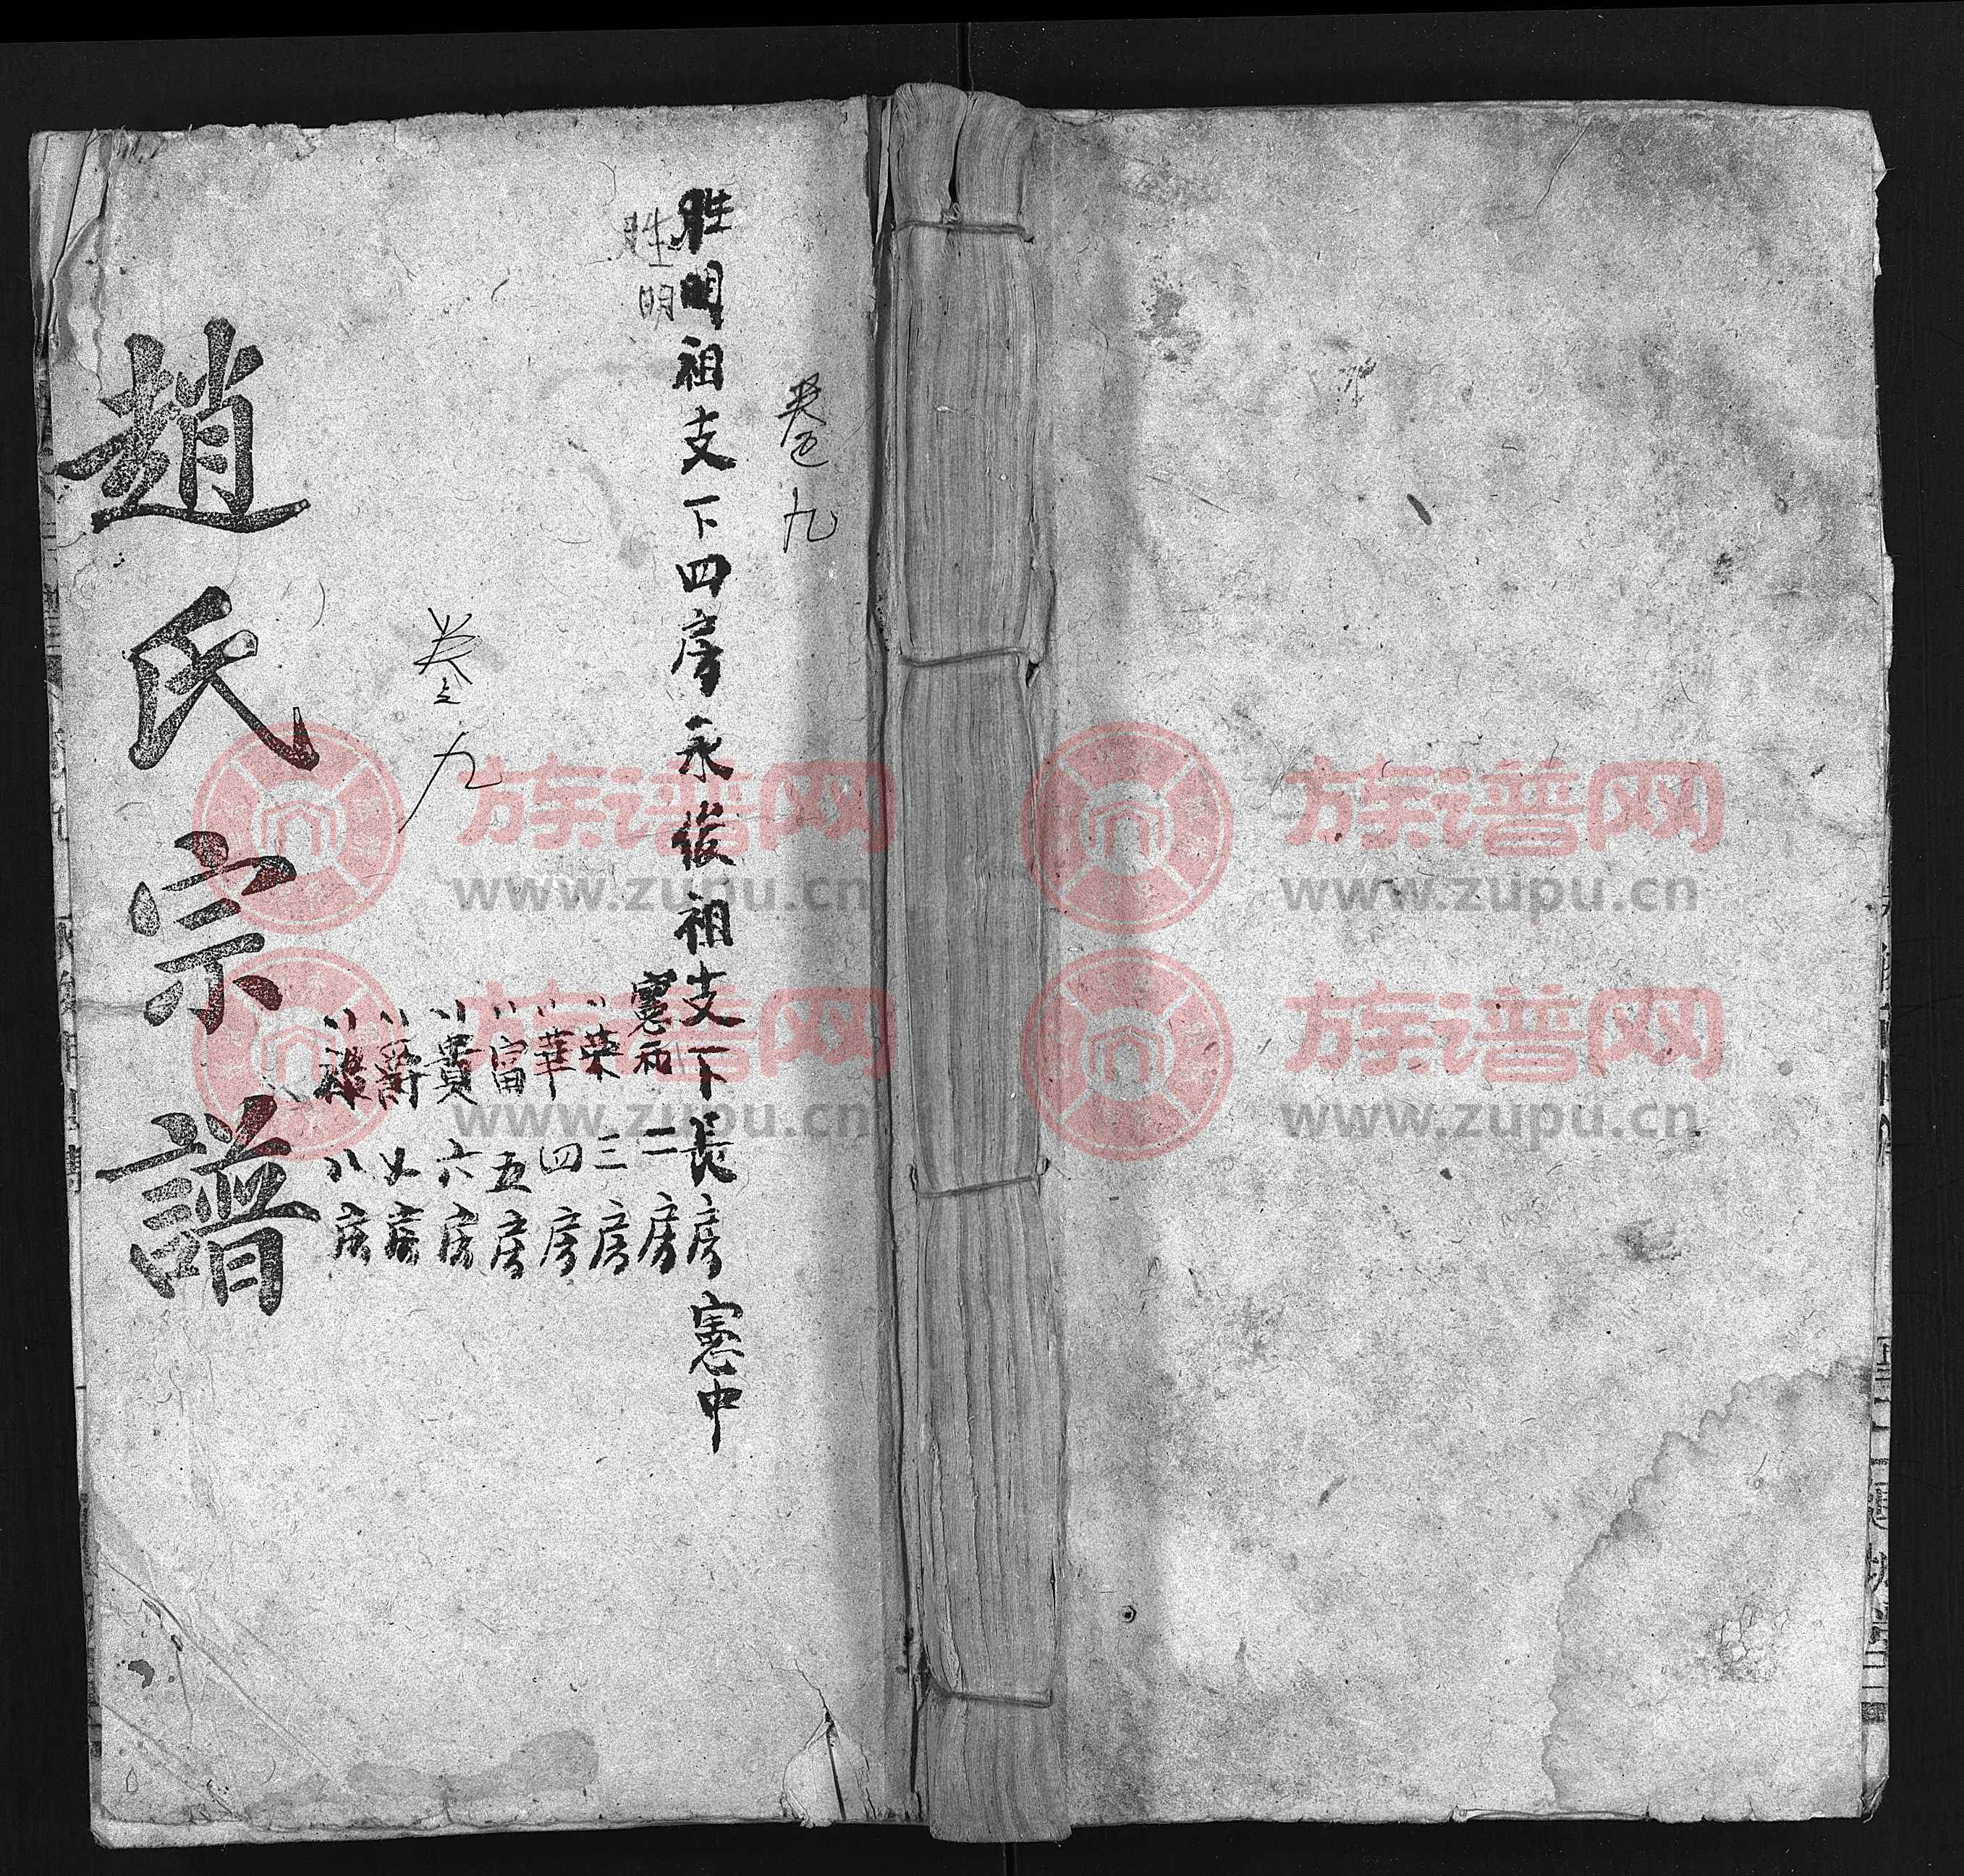 卷九
胜明祖支下四房永俊祖支下長房憲中
胜明
憲而 二房
〃榮 三房
〃華 四房
〃富 五房
〃貴 六房
〃爵 七房
〃祿 八房
卷九
趙氏宗譜
族谱网 族谱网
www.zupu.cn www.zupu.cn
族谱网 族谱网
www.zupu.cn www.zupu.cn